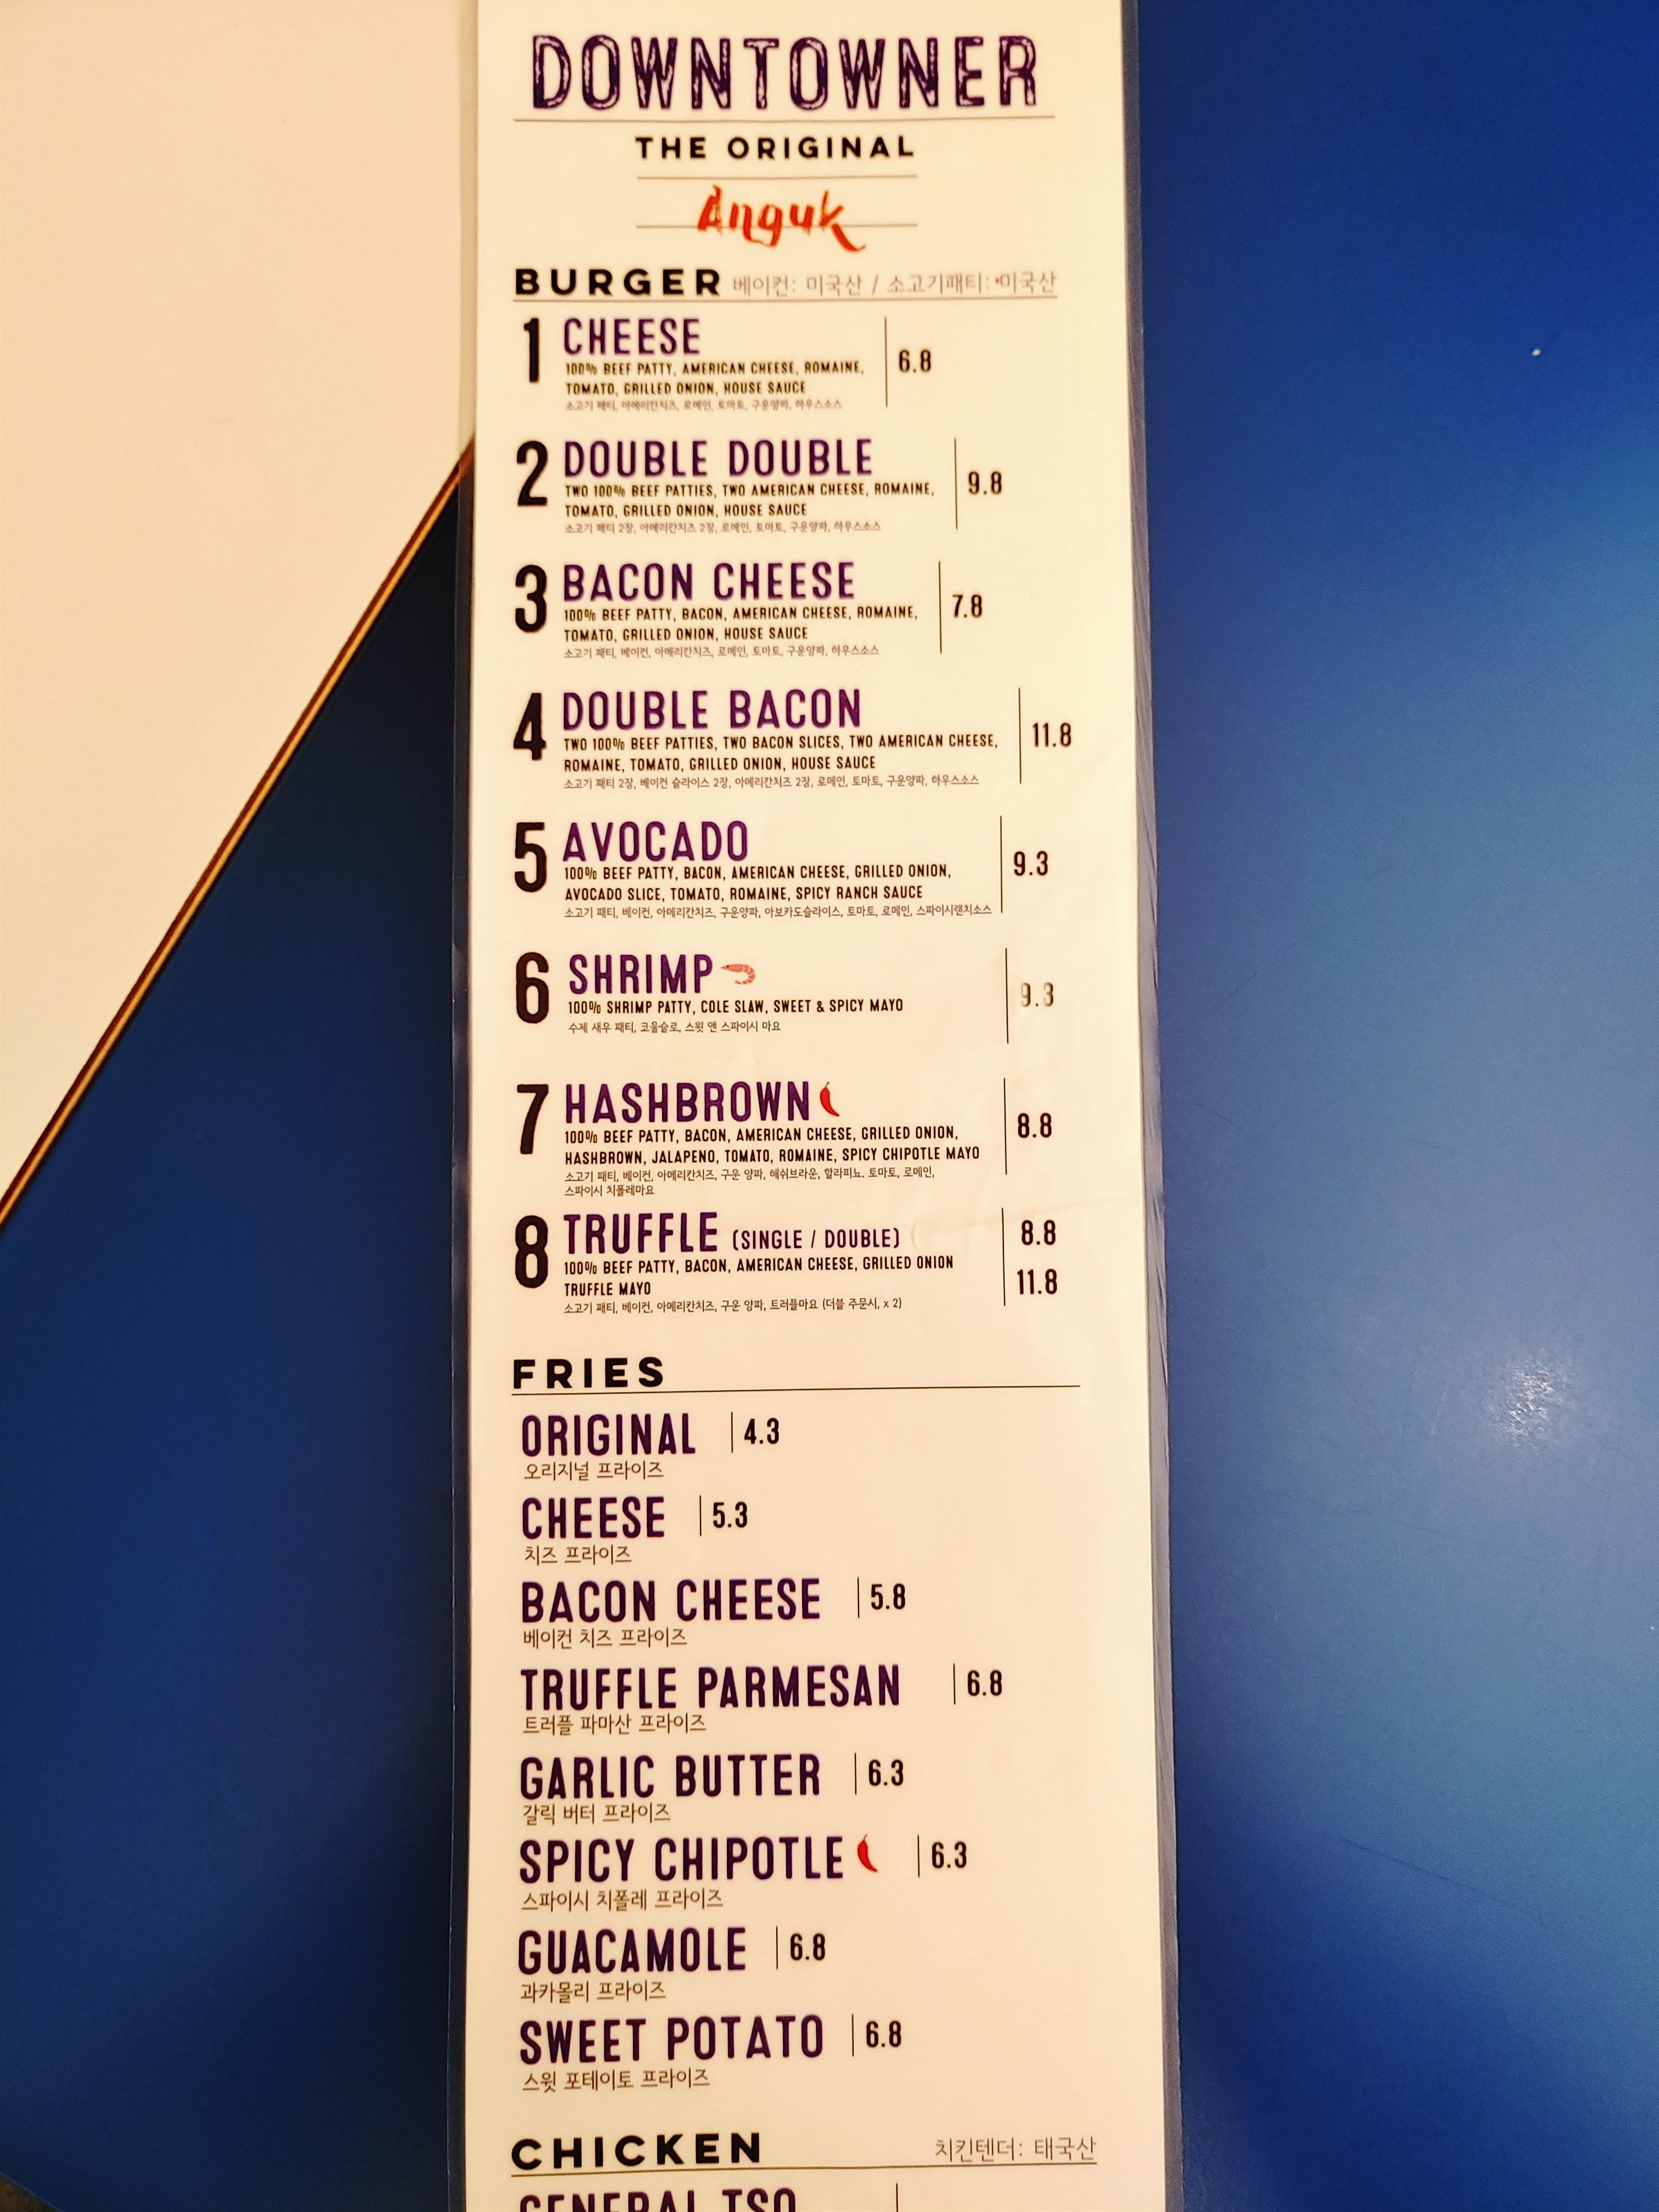 DOWNTOWNER
THE ORIGINAL
Anguk
BURGER 베이컨: 미국산 / 소고기패티: 미국산
1 CHEESE 6.8
100% BEEF PATTY, AMERICAN CHEESE, ROMAINE,
TOMATO, GRILLED ONION, HOUSE SAUCE
소고기 패티, 아메리칸치즈, 로메인, 토마토, 구운양파, 하우스소스
2 DOUBLE DOUBLE 9.8
TWO 100% BEEF PATTIES, TWO AMERICAN CHEESE, ROMAINE,
TOMATO, GRILLED ONION, HOUSE SAUCE
소고기 패티 2장, 아메리칸치즈 2장, 로메인, 토마토, 구운양파, 하우스소스
3 BACON CHEESE 7.8
100% BEEF PATTY, BACON, AMERICAN CHEESE, ROMAINE,
TOMATO, GRILLED ONION, HOUSE SAUCE
소고기 패티, 베이컨, 아메리칸치즈, 로메인, 토마토, 구운양파, 하우스소스
4 DOUBLE BACON 11.8
TWO 100% BEEF PATTIES, TWO BACON SLICES, TWO AMERICAN CHEESE,
ROMAINE, TOMATO, GRILLED ONION, HOUSE SAUCE
소고기 패티 2장, 베이컨 슬라이스 2장, 아메리칸치즈 2장, 로메인, 토마토, 구운양파, 하우스소스
5 AVOCADO 9.3
100% BEEF PATTY, BACON, AMERICAN CHEESE, GRILLED ONION,
AVOCADO SLICE, TOMATO, ROMAINE, SPICY RANCH SAUCE
소고기 패티, 베이컨, 아메리칸치즈, 구운양파, 아보카도슬라이스, 토마토, 로메인, 스파이시랜치소스
6 SHRIMP 9.3
100% SHRIMP PATTY, COLE SLAW, SWEET & SPICY MAYO
수제 새우 패티, 코울슬로, 스윗 앤 스파이시 마요
7 HASHBROWN 8.8
100% BEEF PATTY, BACON, AMERICAN CHEESE, GRILLED ONION,
HASHBROWN, JALAPENO, TOMATO, ROMAINE, SPICY CHIPOTLE MAYO
소고기 패티, 베이컨, 아메리칸치즈, 구운 양파, 해쉬브라운, 할라피뇨. 토마토, 로메인,
스파이시 치폴레마요
8 TRUFFLE (SINGLE / DOUBLE) 8.8
100% BEEF PATTY, BACON, AMERICAN CHEESE, GRILLED ONION
TRUFFLE MAYO 11.8
소고기 패티, 베이컨, 아메리칸치즈, 구운 양파, 트러플마요 (더블 주문시, x 2)
FRIES
ORIGINAL 4.3
오리지널 프라이즈
CHEESE 5.3
치즈 프라이즈
BACON CHEESE 5.8
베이컨 치즈 프라이즈
TRUFFLE PARMESAN 6.8
트러플 파마산 프라이즈
GARLIC BUTTER 6.3
갈릭 버터 프라이즈
SPICY CHIPOTLE 6.3
스파이시 치폴레 프라이즈
GUACAMOLE 6.8
과카몰리 프라이즈
SWEET POTATO 6.8
스윗 포테이토 프라이즈
CHICKEN 치킨텐더: 태국산
GENERAL TSO